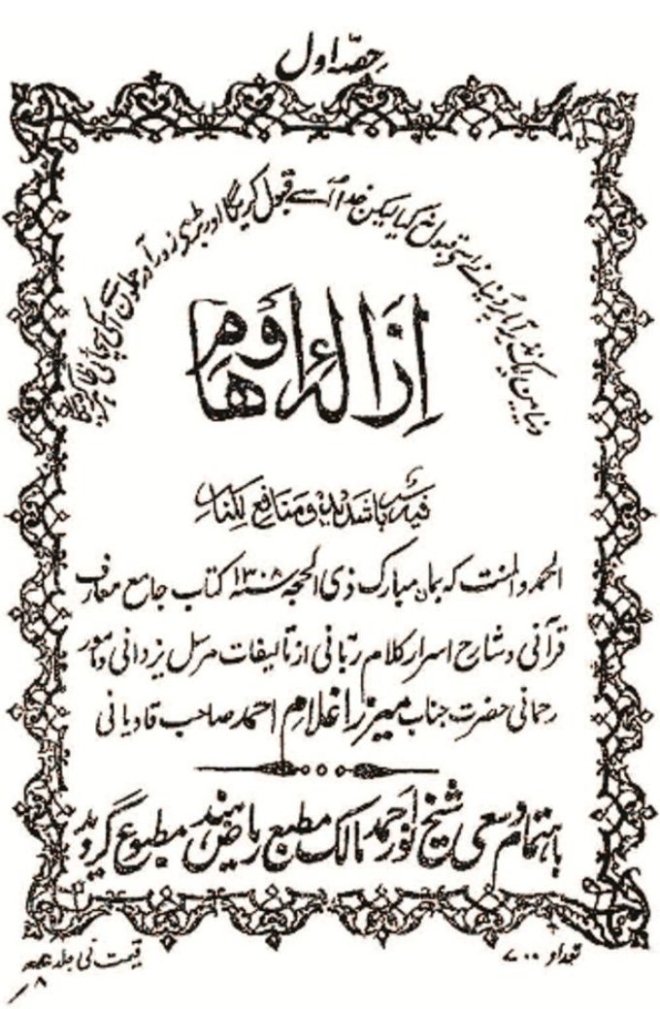 حصّہ اول
دنیا میں ایک نذیر آیا پر دنیا نے اسے قبول نہ کیا لیکن خدا اُسے قبول کریگا اور بڑے زور آور حملوں سے اُسکی سچائی ظاہر کر دیگا
اِزَالۂ اَوْهَام
فِيهِ بَأْسٌ شَدِيدٌ وَّمَنَافِعُ لِلنَّاسِ
الحمد والمنت کہ بماہ مبارک ذی الحجہ سنہ ۱۳۰۸ کتاب جامع معارف
قرآنی و شارح اسرار کلام ربّانی از تالیفات مرسل یزدانی و مامور
رحمانی حضرت جناب میرزا غلام احمد صاحب قادیانی
باہتمام و سعی شیخ نور احمد مالک مطبع ریاض ہند مطبوع گردید
تعداد ۷۰۰
قیمت فی جلد